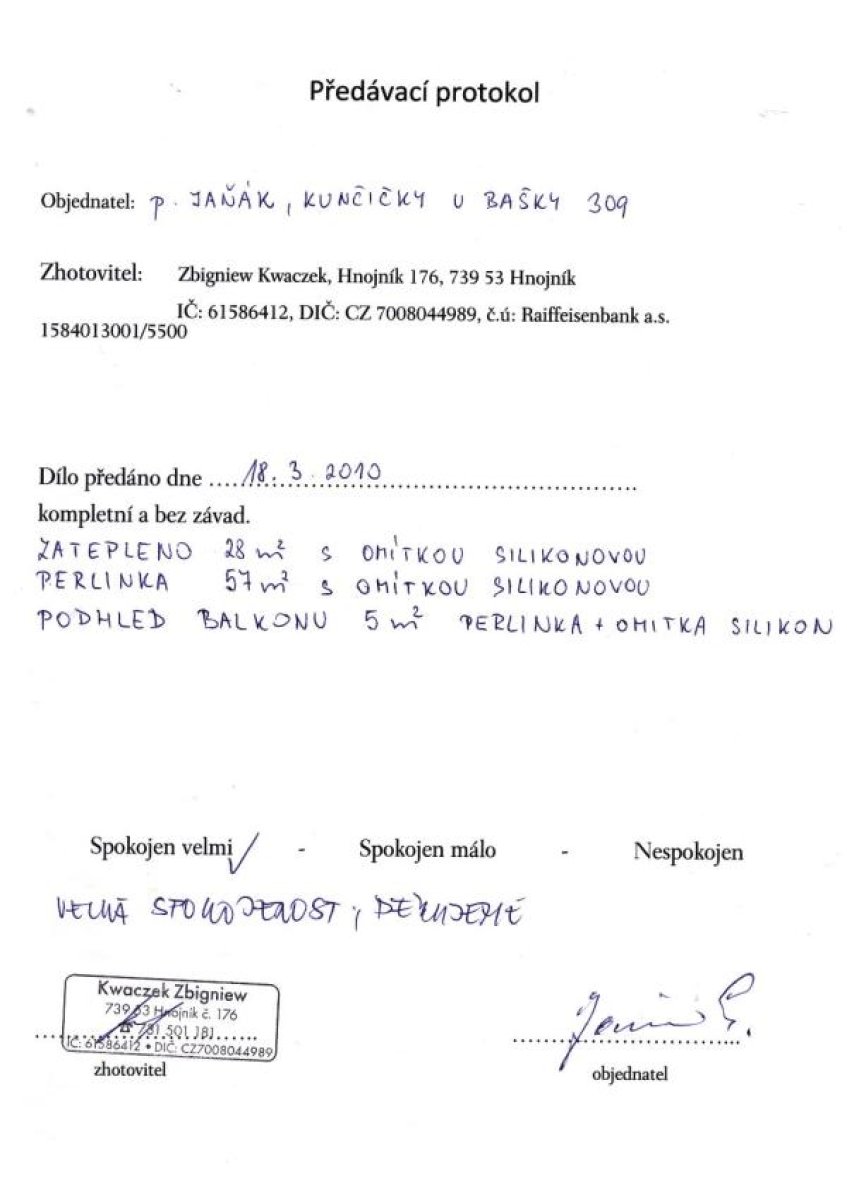 Předávací protokol
Objednatel: p. JAŇÁK, KUNČIČKY U BAŠKY 309
Zhotovitel: Zbigniew Kwaczek, Hnojník 176, 739 53 Hnojník
IČ: 61586412, DIČ: CZ 7008044989, č.ú: Raiffeisenbank a.s.
1584013001/5500
Dílo předáno dne ....18. 3. 2010....................................
kompletní a bez závad.
ZATEPLENO 28 m² S OMÍTKOU SILIKONOVOU
PERLINKA 57 m² S OMÍTKOU SILIKONOVOU
PODHLED BALKONU 5 m² PERLINKA + OMITKA SILIKON
Spokojen velmi ✓ - Spokojen málo - Nespokojen
VELKÁ SPOKOJENOST, DĚKUJEME
Kwaczek Zbigniew
739 53 Hnojník č. 176
☎ 731 501 181
IČ: 61586412 • DIČ: CZ7008044989
zhotovitel
objednatel